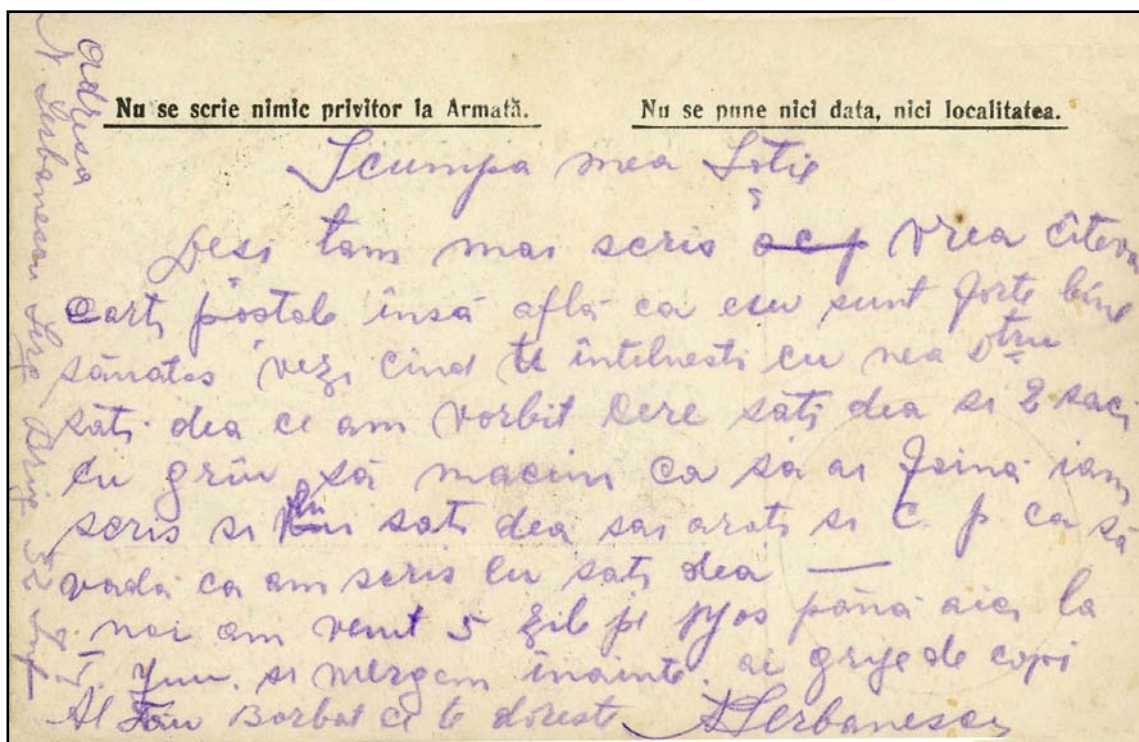 Adresa
N. Serbanescu Serg. Brig. 32 Inf
Nu se scrie nimic privitor la Armată. Nu se pune nici data, nici localitatea.
Scumpa mea Sotie
Desi tam mai scris vrea cîteva
carti postale însă aflâ ca eu sunt forte bine
sânatos vezi cind te întelnesti cu nea Dtru
sâti dea ce am vorbit cere sâti dea si 2 saci
cu grîu sâ macini ca sa ai faină iam
scris si lui sati dea sai arati si C. p. ca sâ
vadâ ca am scris eu sati dea —
noi am venit 5 zile pe jos pânâ aici la
si mergem înainte. ai grije de copi
Al Tău Barbat ce te doreste NSerbanescu